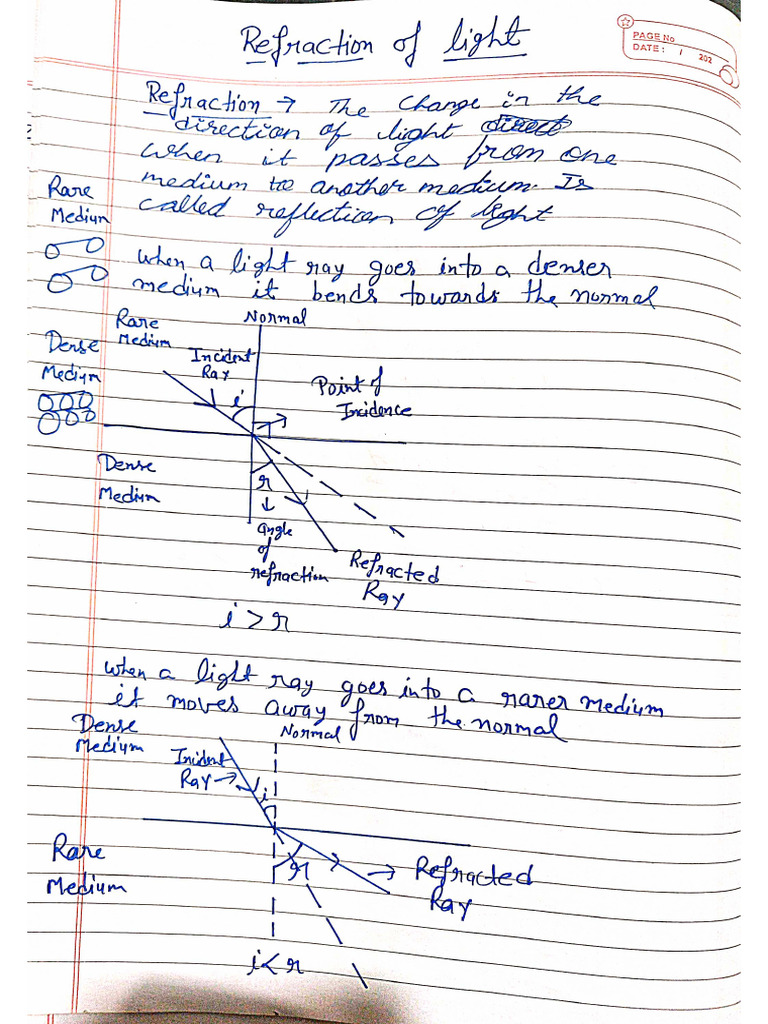 Refraction of light
PAGE No
DATE: / 202
Refraction → The change in the
direction of light direct
when it passes from one
medium to another medium. Is
called reflection of light
Rare
Medium
when a light ray goes into a denser
medium it bends towards the normal
Rare
Medium
Normal
Dense
Medium
Incident
Ray
i
Point of
Incidence
Dense
Medium
r
↓
angle
of
refraction
Refracted
Ray
i > r
when a light ray goes into a rarer medium
it moves away from the normal
Dense
Medium
Normal
Incident
Ray →
i
Rare
Medium
r
→ Refracted
Ray
i < r